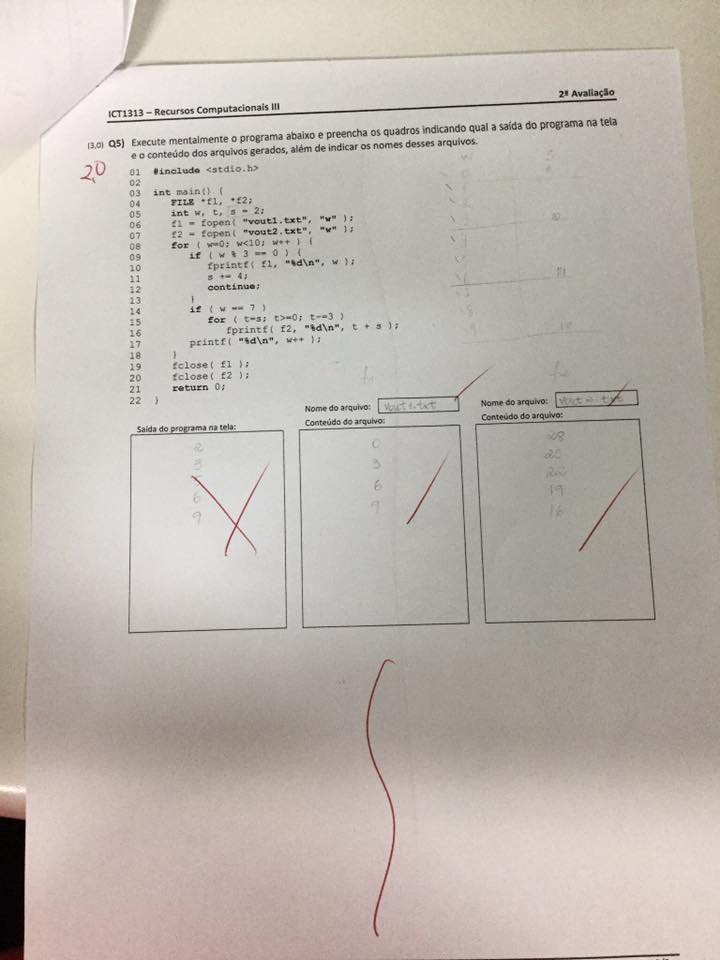 ICT1313 – Recursos Computacionais III
2ª Avaliação
(3,0) Q5) Execute mentalmente o programa abaixo e preencha os quadros indicando qual a saída do programa na tela
e o conteúdo dos arquivos gerados, além de indicar os nomes desses arquivos.
2,0
01 #include <stdio.h>
02
03 int main() {
04 FILE *f1, *f2;
05 int w, t, s = 2;
06 f1 = fopen( "vout1.txt", "w" );
07 f2 = fopen( "vout2.txt", "w" );
08 for ( w=0; w<10; w++ ) {
09 if ( w % 3 == 0 ) {
10 fprintf( f1, "%d\n", w );
11 s += 4;
12 continue;
13 }
14 if ( w == 7 )
15 for ( t=s; t>=0; t-=3 )
16 fprintf( f2, "%d\n", t + s );
17 printf( "%d\n", w++ );
18 }
19 fclose( f1 );
20 fclose( f2 );
21 return 0;
22 }
Saída do programa na tela:
2
3
6
9
Nome do arquivo: vout1.txt
Conteúdo do arquivo:
0
3
6
9
Nome do arquivo:
Conteúdo do arquivo:
28
25
22
19
16